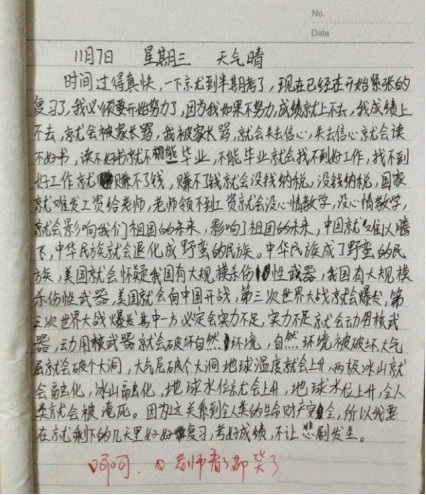 No.
Date
11月7日 星期三 天气晴
时间过得真快,一下就到半期考了,现在已经在开始紧张的
复习了,我必须要开始努力了,因为我如果不努力,成绩就上不去,我成绩上
不去,就会被家长骂,我被家长骂,就会失去信心,失去信心就会读
不好书,读不好书就不能毕业,不能毕业就会找不到好工作,找不到
好工作就赚不了钱,赚不了钱就会没钱纳税,没钱纳税,国家
就难发工资给老师,老师领不到工资就会没心情教学,没心情教学,
就会影响我们祖国的未来,影响了祖国的未来,中国就难以腾
飞,中华民族就会退化成野蛮的民族。中华民族成了野蛮的民
族,美国就会怀疑我国有大规模杀伤性武器,我国有大规模
杀伤性武器,美国就会向中国开战,第三次世界大战就会爆发,第
三次世界大战爆发其中一方必定会实力不足,实力不足就会动用核武
器,动用核武器就会破坏自然环境,自然环境被破坏大气
层就会破个大洞,大气层破个大洞地球温度就会上升,两极冰山就
会融化,冰山融化,地球水位就会上升,地球水位上升,全人
类就会被淹死。因为这关系到全人类的生命财产安全,所以我要
在就剩下的几天里好好复习,考好成绩,不让悲剧发生。
呵呵,老师看了都笑了